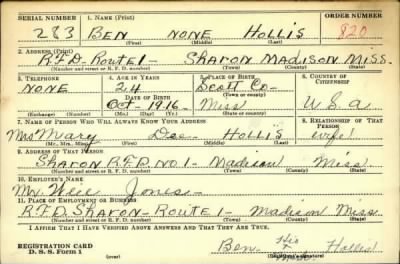 SERIAL NUMBER 1. NAME (Print) ORDER NUMBER
283 BEN NONE HOLLIS 820
(First) (Middle) (Last)
2. ADDRESS (Print)
R.F.D. ROUTE 1 - SHARON MADISON MISS.
(Number and street or R. F. D. number) (Town) (County) (State)
3. TELEPHONE 4. AGE IN YEARS 5. PLACE OF BIRTH 6. COUNTRY OF CITIZENSHIP
NONE 24 Scott Co-
DATE OF BIRTH (Town or county)
Oct - 1916- Miss U.S.A.
(Exchange) (Number) (Mo.) (Day) (Yr.) (State or country)
7. NAME OF PERSON WHO WILL ALWAYS KNOW YOUR ADDRESS 8. RELATIONSHIP OF THAT PERSON
Mrs Mary Dee HOLLIS wife
(Mr., Mrs., Miss) (First) (Middle) (Last)
9. ADDRESS OF THAT PERSON
SHARON R.F.D. NO. 1 - Madison Miss
(Number and street or R. F. D. number) (Town) (County) (State)
10. EMPLOYER'S NAME
Mr. Jones-
11. PLACE OF EMPLOYMENT OR BUSINESS
R.F.D. SHARON - ROUTE 1 - Madison Miss
(Number and street or R. F. D. number) (Town) (County) (State)
I AFFIRM THAT I HAVE VERIFIED ABOVE ANSWERS AND THAT THEY ARE TRUE.
REGISTRATION CARD
D. S. S. Form 1
Ben His X Mark Hollis